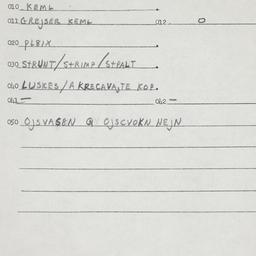 010 KEML
011 GREJSER KEML 012. O
020 PLBIX
030 STRUNT/STRIMP/STPALT
040 LUSKES/A KRECAVAJTE KOP.
041 — 042 —
050 OJSVASEN @ OJSCVOKN NEJN